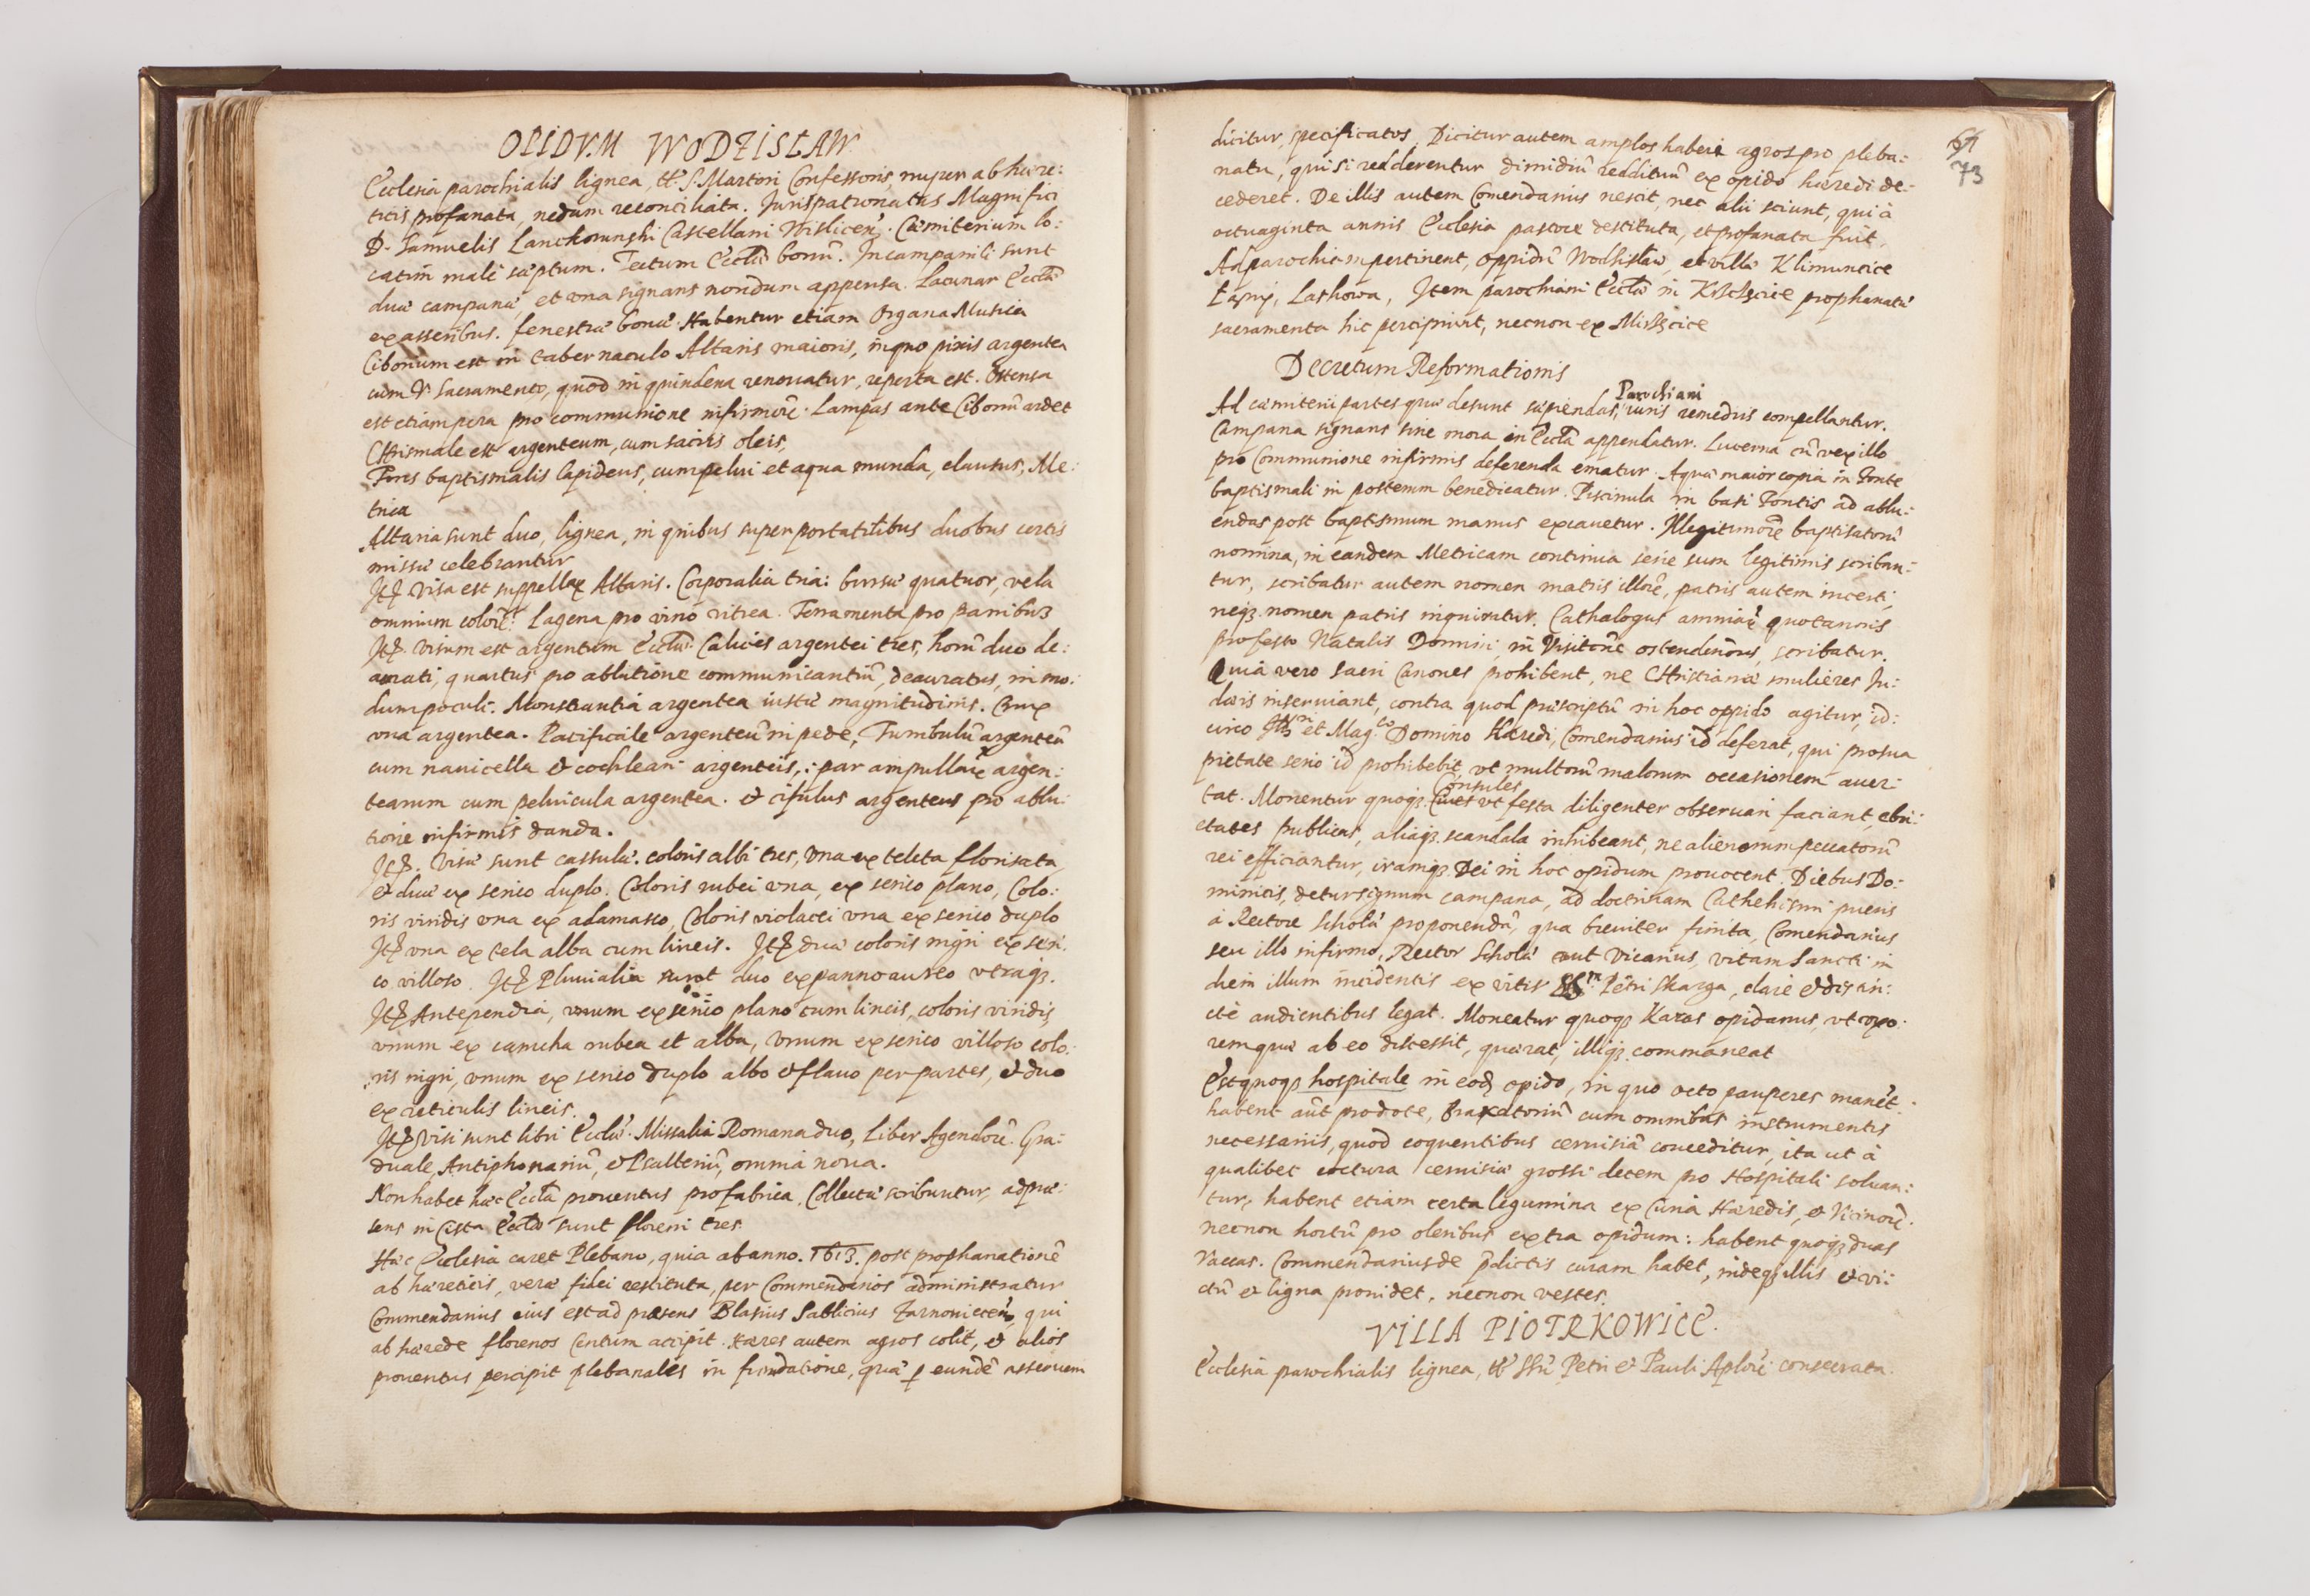 OPIDVM WODZISLAW
Ecclesia parochialis lignea, tt͞i S. Martini Confessoris, nuper ab hære:
ticis profanata, nedum reconciliata. Iurispatronatus Magnifici
D. Samuelis Lanckorunski Castellani Wislicen̄. Cæmiterium lo:
catim male sæptum. Tectum Eccl͞æ bonū. In campanili sunt
duæ campanæ et vna signans nondum appensa. Lacunar Eccl͞æ
ex asseribus. fenestræ bonæ. Habentur etiam Organa Musica
Ciborium est in tabernaculo Altaris maioris, in quo pixis argentea
cum V. Sacramento, quod in quindena renouatur, reperta est. Ostensa
est etiam pera pro communione infirmorū. Lampas ante Ciboriū ardet
CHrismale est argenteum, cum sacris oleis,
Fons baptismalis lapideus, cum pelui et aqua munda, clausus, Me:
trica
Altaria sunt duo, lignea, in quibus super portatilibus duobus certis
missæ celebrantur
Itē visa est suppellex Altaris. Corporalia tria: bursæ quatuor, vela
omnium colorū. Lagena pro vino vitrea. Ferramenta pro panibus
Itē. visum est argentum Eccl͞æ. Calices argentei tres, horū duo de:
aurati, quartus pro ablutione communicantiū, deauratus, in mo:
dum poculi. Monstrantia argentea iustæ magnitudinis. Crux
vna argentea. Pacificale argenteū in pede, Turribulū argenteū
cum nauicella & cochleari argenteis, : par ampullarū argen:
tearum cum peluicula argentea. & cifulus argenteus pro ablu:
tione infirmis danda.
Itē. Visæ sunt cassulæ. coloris albi tres, vna ex teleta florisata
& duæ ex serico duplo. Coloris rubei vna, ex serico plano, Colo:
ris viridis vna ex adamasco, Coloris violacei vna ex serico duplo
Itē vna ex tela alba cum lineis. Itē duæ coloris nigri ex seri:
co villoso. Itē Pluuialia sunt duo ex panno aureo vtraqȝ.
Itē Antependia, vnum ex serico plano cum lineis, coloris viridis,
vnum ex camcha rubea et alba, vnum ex serico villoso colo:
ris nigri, vnum ex serico duplo albo & flauo per partes, & duo
ex reticulis lineis.
Itē visi sunt libri Eccl͞æ. Missalia Romana duo, Liber Agendorū. Gra:
duale, Antiphonariū, & Psalteriū, omnia noua.
Non habet hæc Eccl͞a prouentus pro fabrica. Collectæ scribuntur, ad præ:
sens in Cista Eccl͞æ sunt floreni tres
Hæc Ecclesia caret Plebano, quia ab anno. 1613. post prophanationē
ab hæreticis, veræ fidei restituta, per Commendarios administratur
Commendarius eius est ad præsens Blasius Sablicius Zarnouiecen̄, qui
ab hærede florenos Centum accipit. Hæres autem agros colit, & alios
prouentus percipit plebanales in fundatione, quæ ꝑ eundē asseruem
61
73
dicitur, specificatos. Dicitur autem amplos habere agros pro pleba:
natu, qui si redderentur dimidiū reddituū ex opido hæredi de:
cederet. De illis autem Comendarius nescit, nec alii sciunt, quia
octuaginta annis Ecclesia pastore destituta, et profanata fuit.
Ad parochiam pertinent, oppidū Wodzislaw, et villæ Klimuntice
Łanÿ, Laskowa, Item parochiani Eccl͞æ in prophanatæ
sacramenta hic percipiunt, necnon ex
Decretum Reformationis
Ad cæmiterii partes quæ desunt sæpiendas, Parochiani iuris remediis compellantur.
Campana signans sine mora in Eccl͞a appendatur. Lucerna cū vexillo
pro Communione infirmis deferenda ematur. Aquæ maior copia in Fonte
baptismali in posterum benedicatur. Piscinula in basi Fontis ad ablu:
endas post baptismum manus excauetur. Illegitimorū baptisatorū
nomina, in eandem Metricam continua serie cum legitimis scriban:
tur, scribatur autem nomen matris illorū, patris autem incerti,
neqȝ nomen patris inquiratur. Cathalogus animarū quotannis
pro festo Natalis Domini, in Visitōne ostendendus, scribatur.
Quia vero sacri Canones prohibent, ne CHristianæ mulieres Iu:
dæis inseruiant, contra quod præscriptū in hoc oppido agitur, id:
circo et Mag.co Domino Hæredi, Comendarius id deferat, qui pro sua
pietate serio id prohibebit, vt multorū malorum occasionem auer:
tat. Monentur quoqȝ Consules vt festa diligenter obseruari faciant, ebri:
etates publicas, aliaqȝ scandala inhibeant, ne alienorum peccatorū
rei efficiantur, iramqȝ Dei in hoc opidum prouocent. Diebus Do:
minicis, detur signum campana, ad doctrinam Cathehismi pueris
a Rectore Scholæ proponendā, qua breuiter finita, Comendarius
seu illo infirmo, Rector Scholæ aut Vicarius, vitam Sancti in
diem illum incidentis ex vitis Petri Skarga, clare & distin:
cte audientibus legat. Moneatur quoqȝ Karas opidanus, vt vxo:
rem quæ ab eo discessit, quærat, illiqȝ commaneat
Est quoqȝ hospitale in eodē opido, in quo octo pauperes manēt.
habent aūt pro dote, Braxatoriū cum omnibus instrumentis
necessariis, quod coquentibus ceruisiā conceditur, ita ut à
qualibet coctura ceruisiæ grossi decem pro Hospitali soluan:
tur, habent etiam certa legumina ex Curia Hæredis, & Vicinorū.
necnon hortū pro oleribus extra opidum: habent quoqȝ duas
Vaccas. Commendarius de p̄dictis curam habet, indeqȝ illis & vi:
ctū & ligna prouidet, necnon vestes.
VILLA PIOTRKOWICE.
Ecclesia parochialis lignea, tt͞i Ss͞. Petri & Pauli Aplorū consecrata.